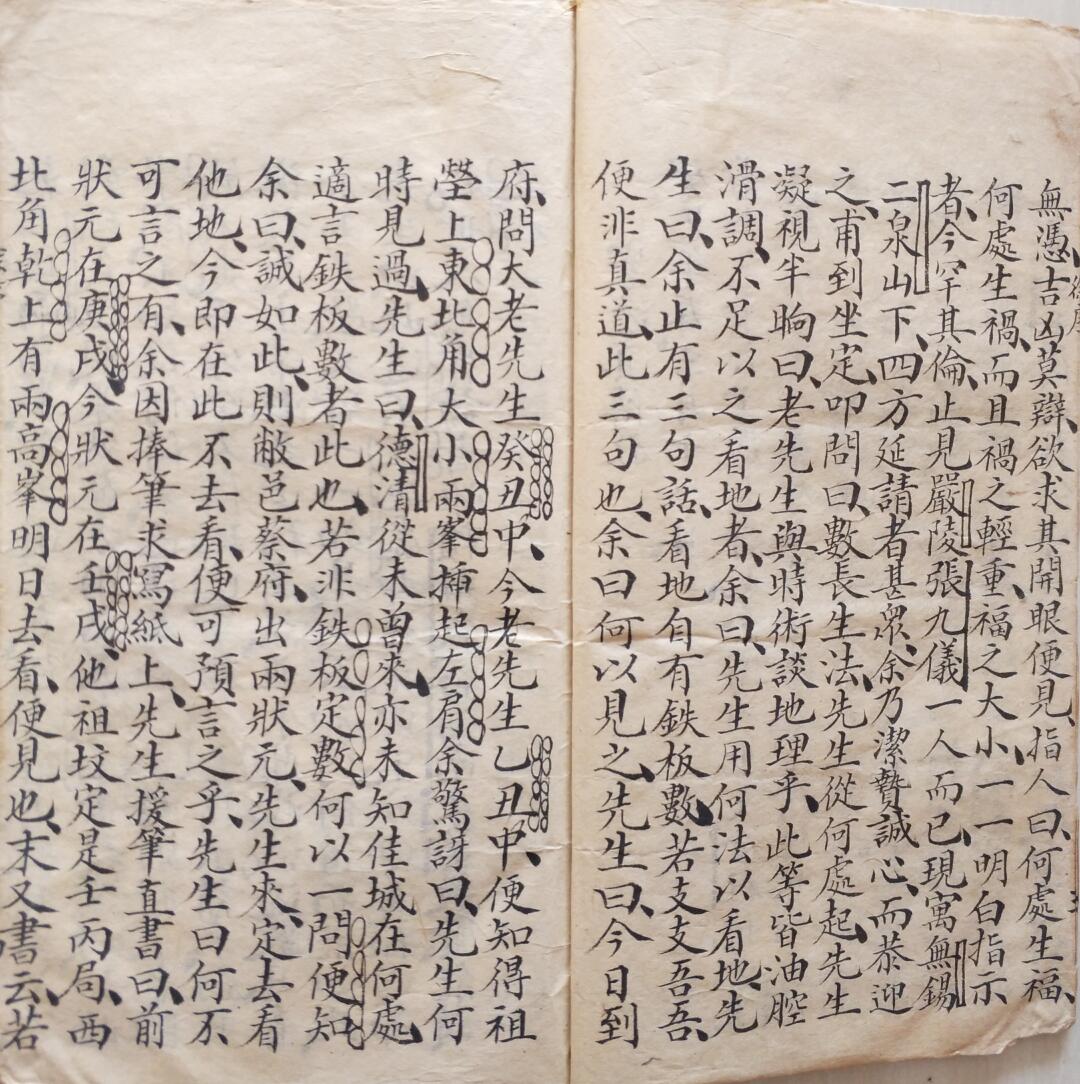 無憑、吉凶莫辯、欲求其開眼便見、指人曰、何處生福、
何處生禍、而且禍之輕重、福之大小、一一明白指示
者、今罕其倫、止見嚴陵張九儀一人而已、現寓無錫
二泉山下、四方延請者甚衆、余乃潔贄誠心、而恭迎
之、甫到坐定、叩問曰、數長生法、先生從何處起、先生
凝視半晌曰、老先生與時術談地理乎、此等皆油腔
滑調、不足以之看地者、余曰、先生用何法以看地、先
生曰、余止有三句話、看地自有鉄板數、若支支吾吾、
便非真道、此三句也、余曰何以見之、先生曰、今日到
府、問大老先生癸丑中、今老先生乙丑中、便知得祖
塋上東北角大小兩峯挿起左肩、余驚訝曰、先生何
時見過、先生曰、德清從未曾來、亦未知佳城在何處、
適言鉄板數者此也、若非鉄板定數、何以一問便知
余曰、誠如此、則敝邑蔡府、出兩狀元、先生來、定去看
他地、今即在此不去看、便可預言之乎、先生曰何不
可言之有、余因捧筆求寫紙上、先生援筆直書曰、前
狀元在庚戌、今狀元在壬戌、他祖坟定是壬丙局、西
北角乾上有兩高峯、明日去看、便見也、末又書云、若